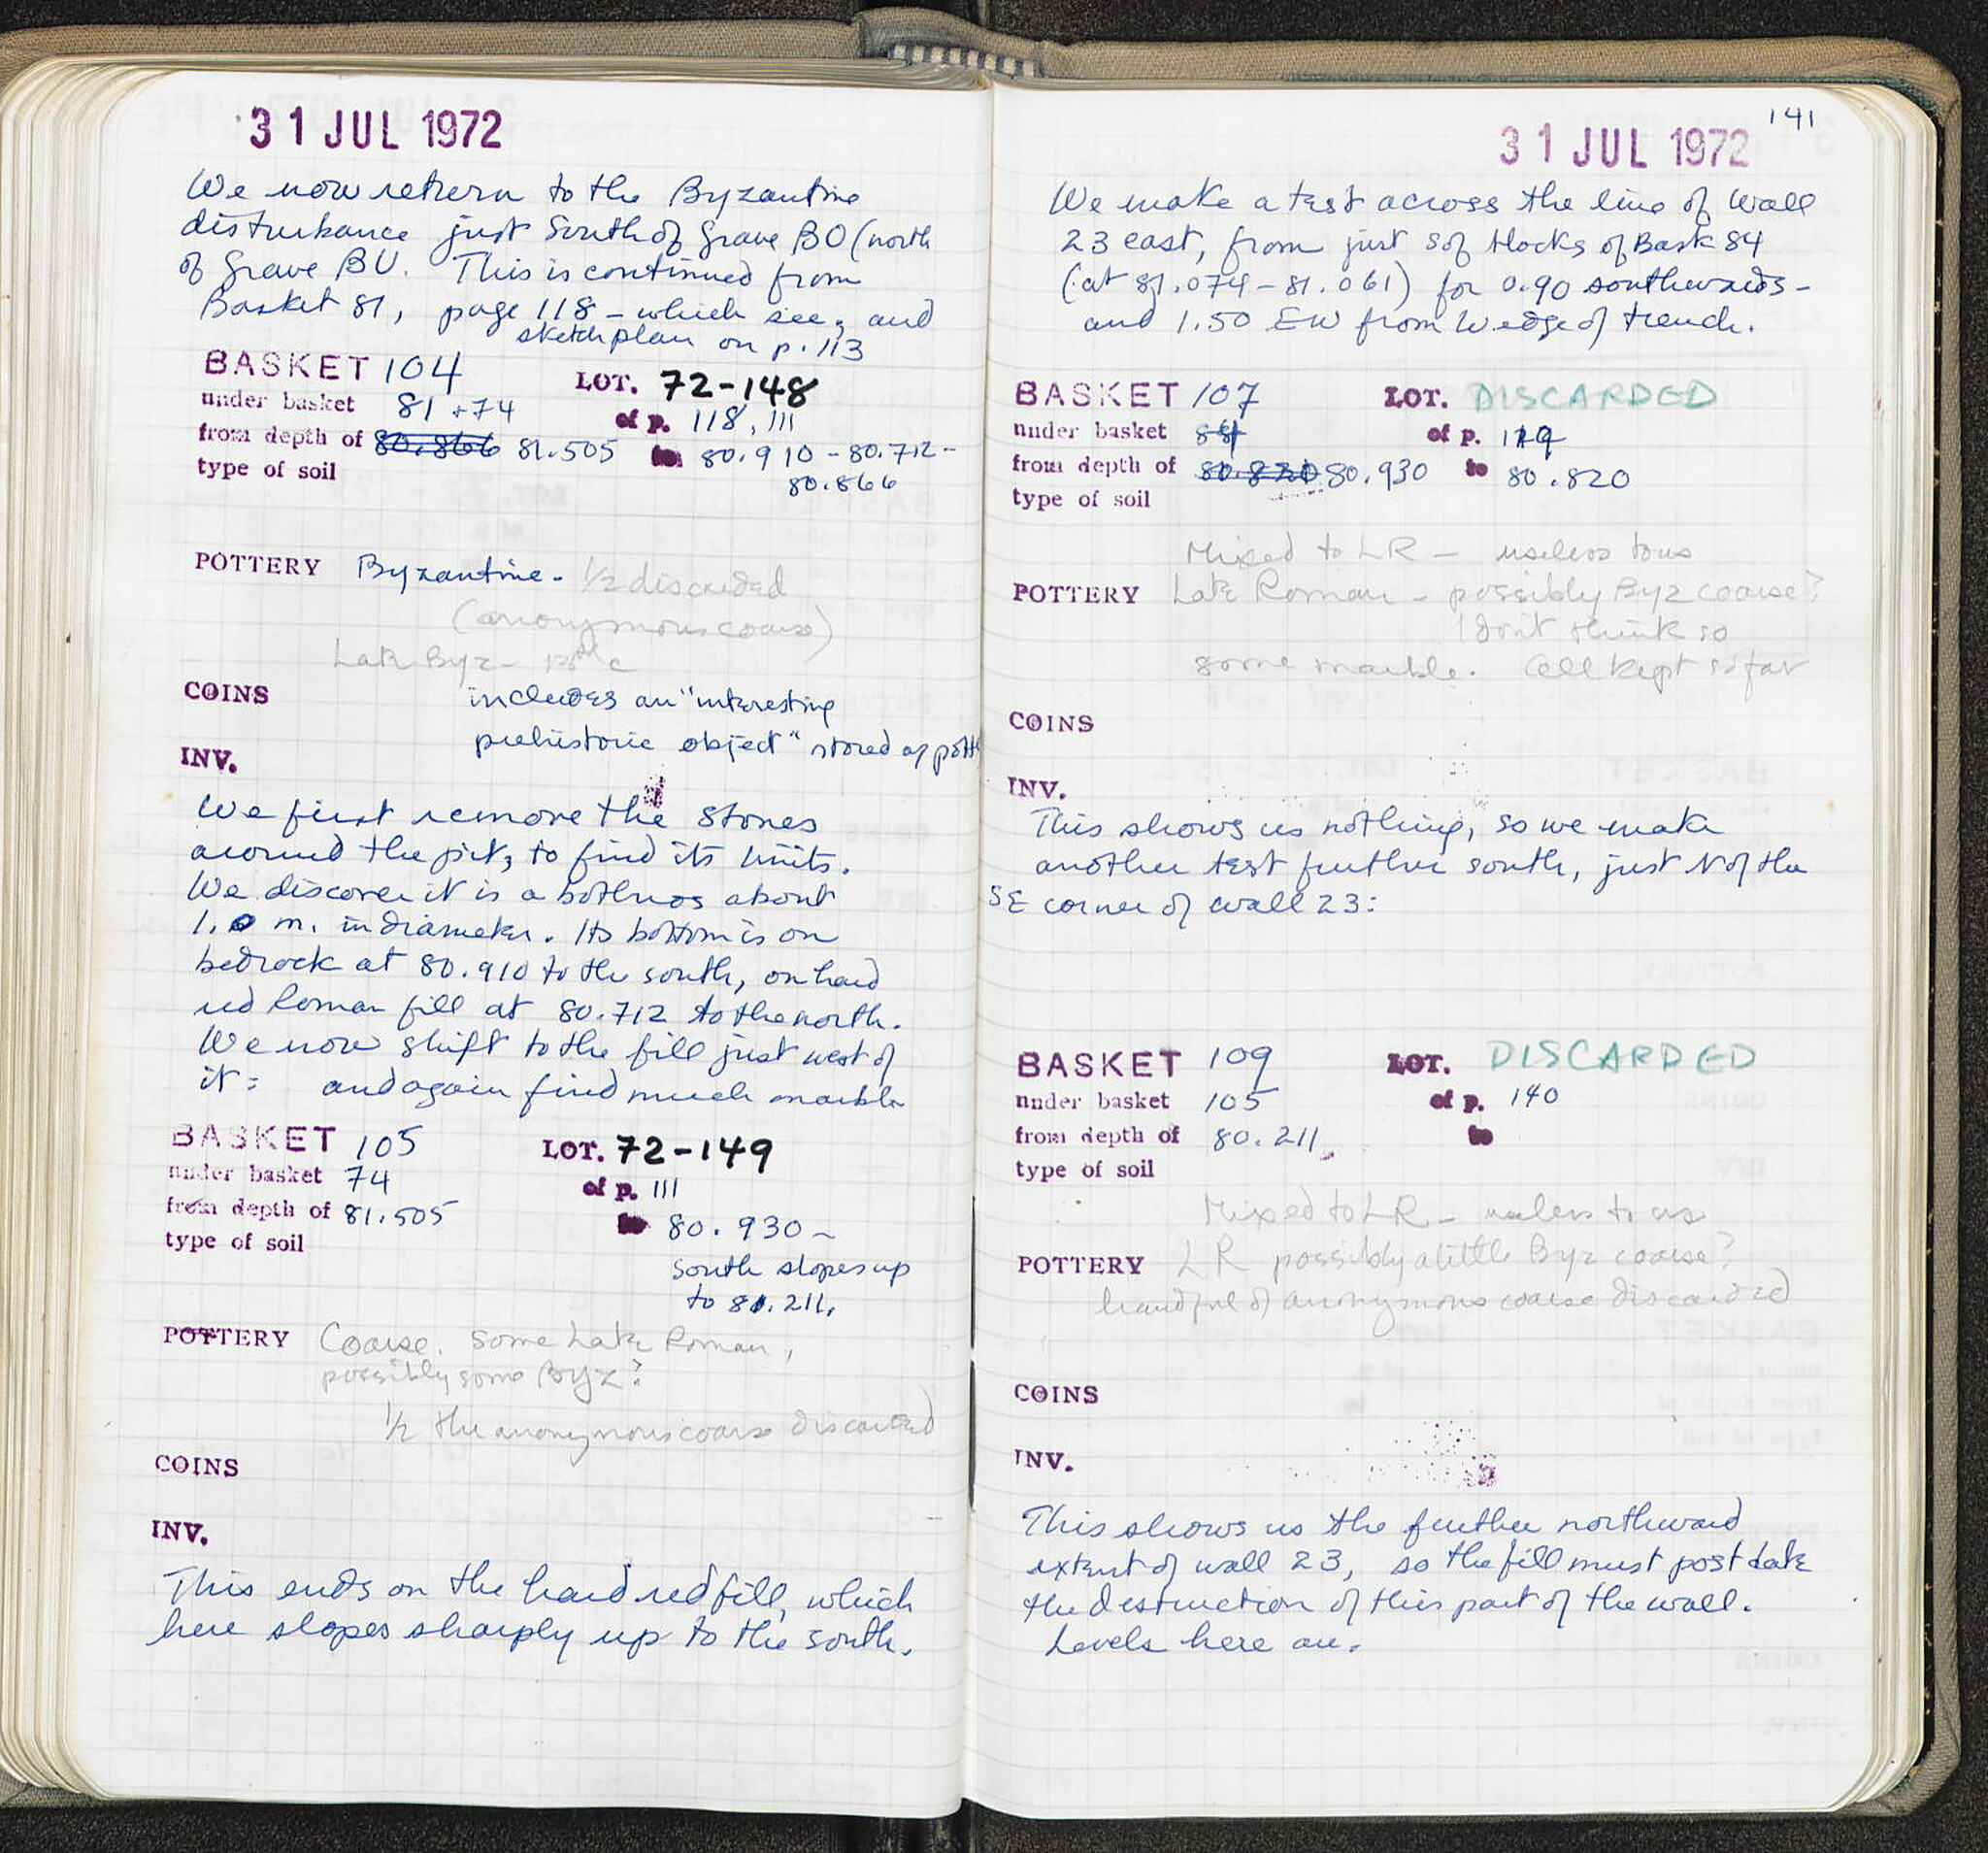 31 JUL 1972
We now return to the Byzantine
disturbance just South of Grave BO (north
of Grave BU. This is continued from
Basket 81, page 118 - which see, and
sketchplan on p. 113
BASKET 104 LOT. 72-148
under basket 81 + 74 of p. 118, 111
from depth of 80.866 81.505 to 80.910 - 80.712 -
80.866
type of soil
POTTERY Byzantine. 1/2 discarded
(anonymous coarse)
Late Byz - c
COINS includes an "interesting
prehistoric object" stored
INV.
We first remove the stones
around the pit, to find its limits.
We discover it is a bothros about
1.0 m. in diameter. Its bottom is on
bedrock at 80.910 to the south, on hard
red Roman fill at 80.712 to the north.
We now shift to the fill just west of
it: and again find much marble
BASKET 105 LOT. 72-149
under basket 74 of p. 111
from depth of 81.505 to 80.930 -
type of soil
south slopes up
to 81.211.
POTTERY Coarse. Some Late Roman,
possibly some Byz?
1/2 the anonymous coarse discarded
COINS
INV.
This ends on the hard red fill, which
here slopes sharply up to the south.
141
31 JUL 1972
We make a test across the line of Wall
23 east, from just S of blocks of Bask 84
(at 81.074 - 81.061) for 0.90 southwards -
and 1.50 EW from W edge of trench.
BASKET 107 LOT. DISCARDED
under basket 84 of p. 119
from depth of 80.820 80.930 to 80.820
type of soil
Mixed to LR - useless to us
POTTERY Late Roman - possibly Byz coarse?
I don't think so
some marble. All kept so far
COINS
INV.
This shows us nothing, so we make
another test further south, just N of the
SE corner of wall 23:
BASKET 109 LOT. DISCARDED
under basket 105 of p. 140
from depth of 80.211, to
type of soil
Mixed to LR - useless to us
POTTERY LR possibly a little Byz coarse?
handful of anonymous coarse discarded
COINS
INV.
This shows us the further northward
extent of wall 23, so the fill must post date
the destruction of this part of the wall.
Levels here are.